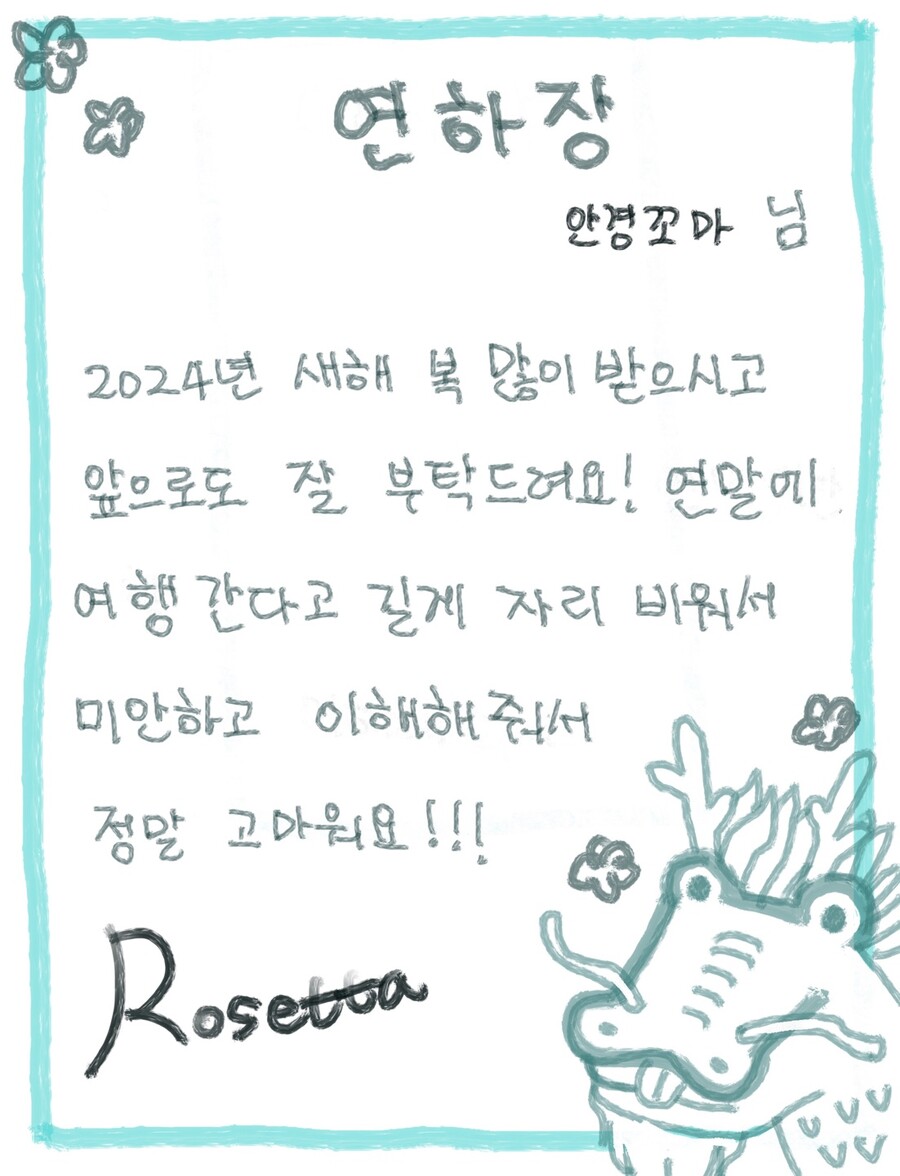 연하장
안경꼬마 님
2024년 새해 복 많이 받으시고
앞으로도 잘 부탁드려요! 연말에
여행 간다고 길게 자리 비워서
미안하고 이해해줘서
정말 고마워요!!!
Rosetta